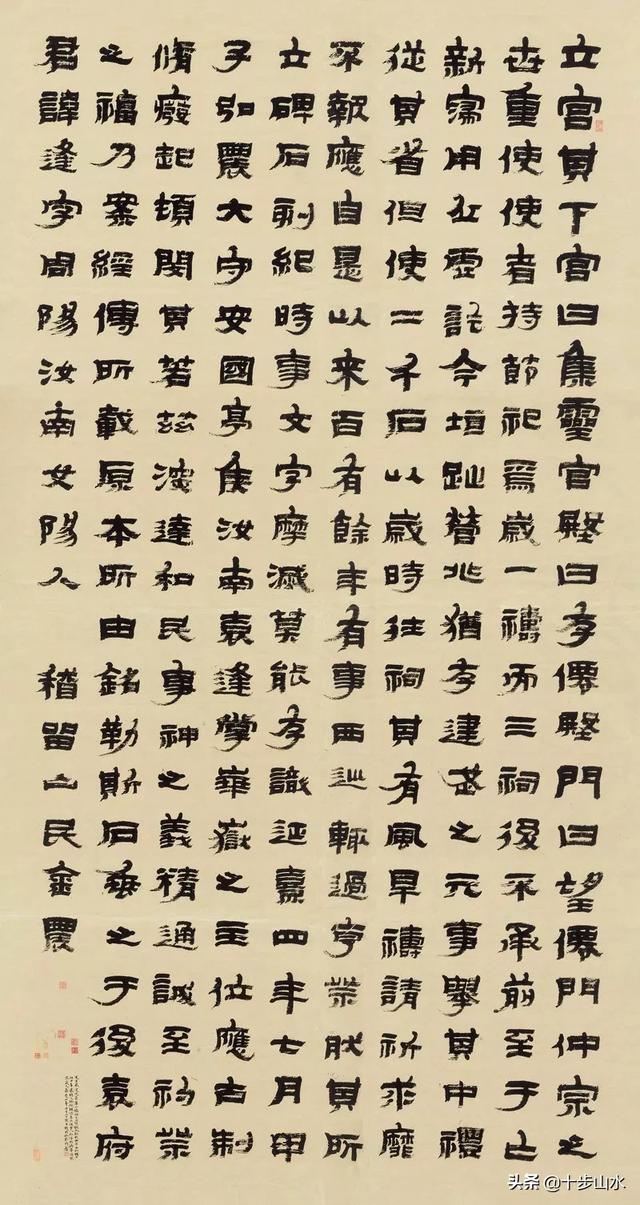 立宮其下宮曰集靈宮殿曰存僊殿門曰望僊門仲宗之
世重使使者持節祀焉歲一禱而三祠後不承前至于亡
新寖用丘虛訖今垣趾營兆猶存建武之元事舉其中禮
從其省但使二千石以歲時往祠其有風旱禱請祈求靡
不報應自是以來百有餘年有事西巡輒過亨祭肰其所
立碑石刻紀時事文字摩滅莫能存識延熹四年七月甲
子弘農大守安國亭侯汝南袁逢掌華嶽之主位應古制
脩癈起頓閔其若茲深達和民事神之義精通誠至礿祭
之福乃案經傳所載原本所由銘勒斯石垂之于後袁府
君諱逢字周陽汝南女陽人
稽留山民金農
头条 @十步山水